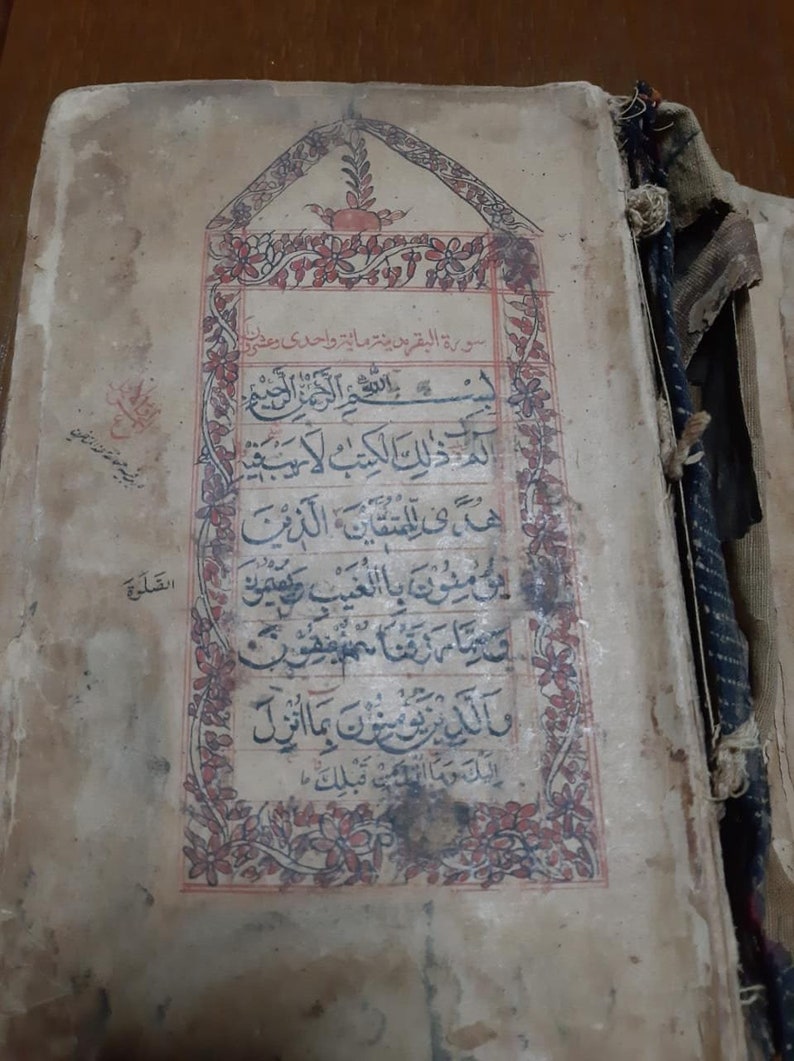 سورة البقر مدينتر مائتر واحدى وعشرون
بِسْــــمِ اللّٰهِ الرَّحْمٰنِ الرَّحِيْمِ
الٓمّٓ ذٰلِكَ الْكِتٰبُ لَا رَيْبَ فِيْهِ
هُدًى لِّلْمُتَّقِيْنَ الَّذِيْنَ
يُؤْمِنُوْنَ بِالْغَيْبِ وَيُقِيْمُوْنَ
الصَّلٰوةَ
وَمِمَّا رَزَقْنَاهُمْ يُنْفِقُوْنَ
وَالَّذِيْنَ يُؤْمِنُوْنَ بِمَا اُنْزِلَ
اِلَيْكَ وَمَا اُنْزِلَ مِنْ قَبْلِكَ ط